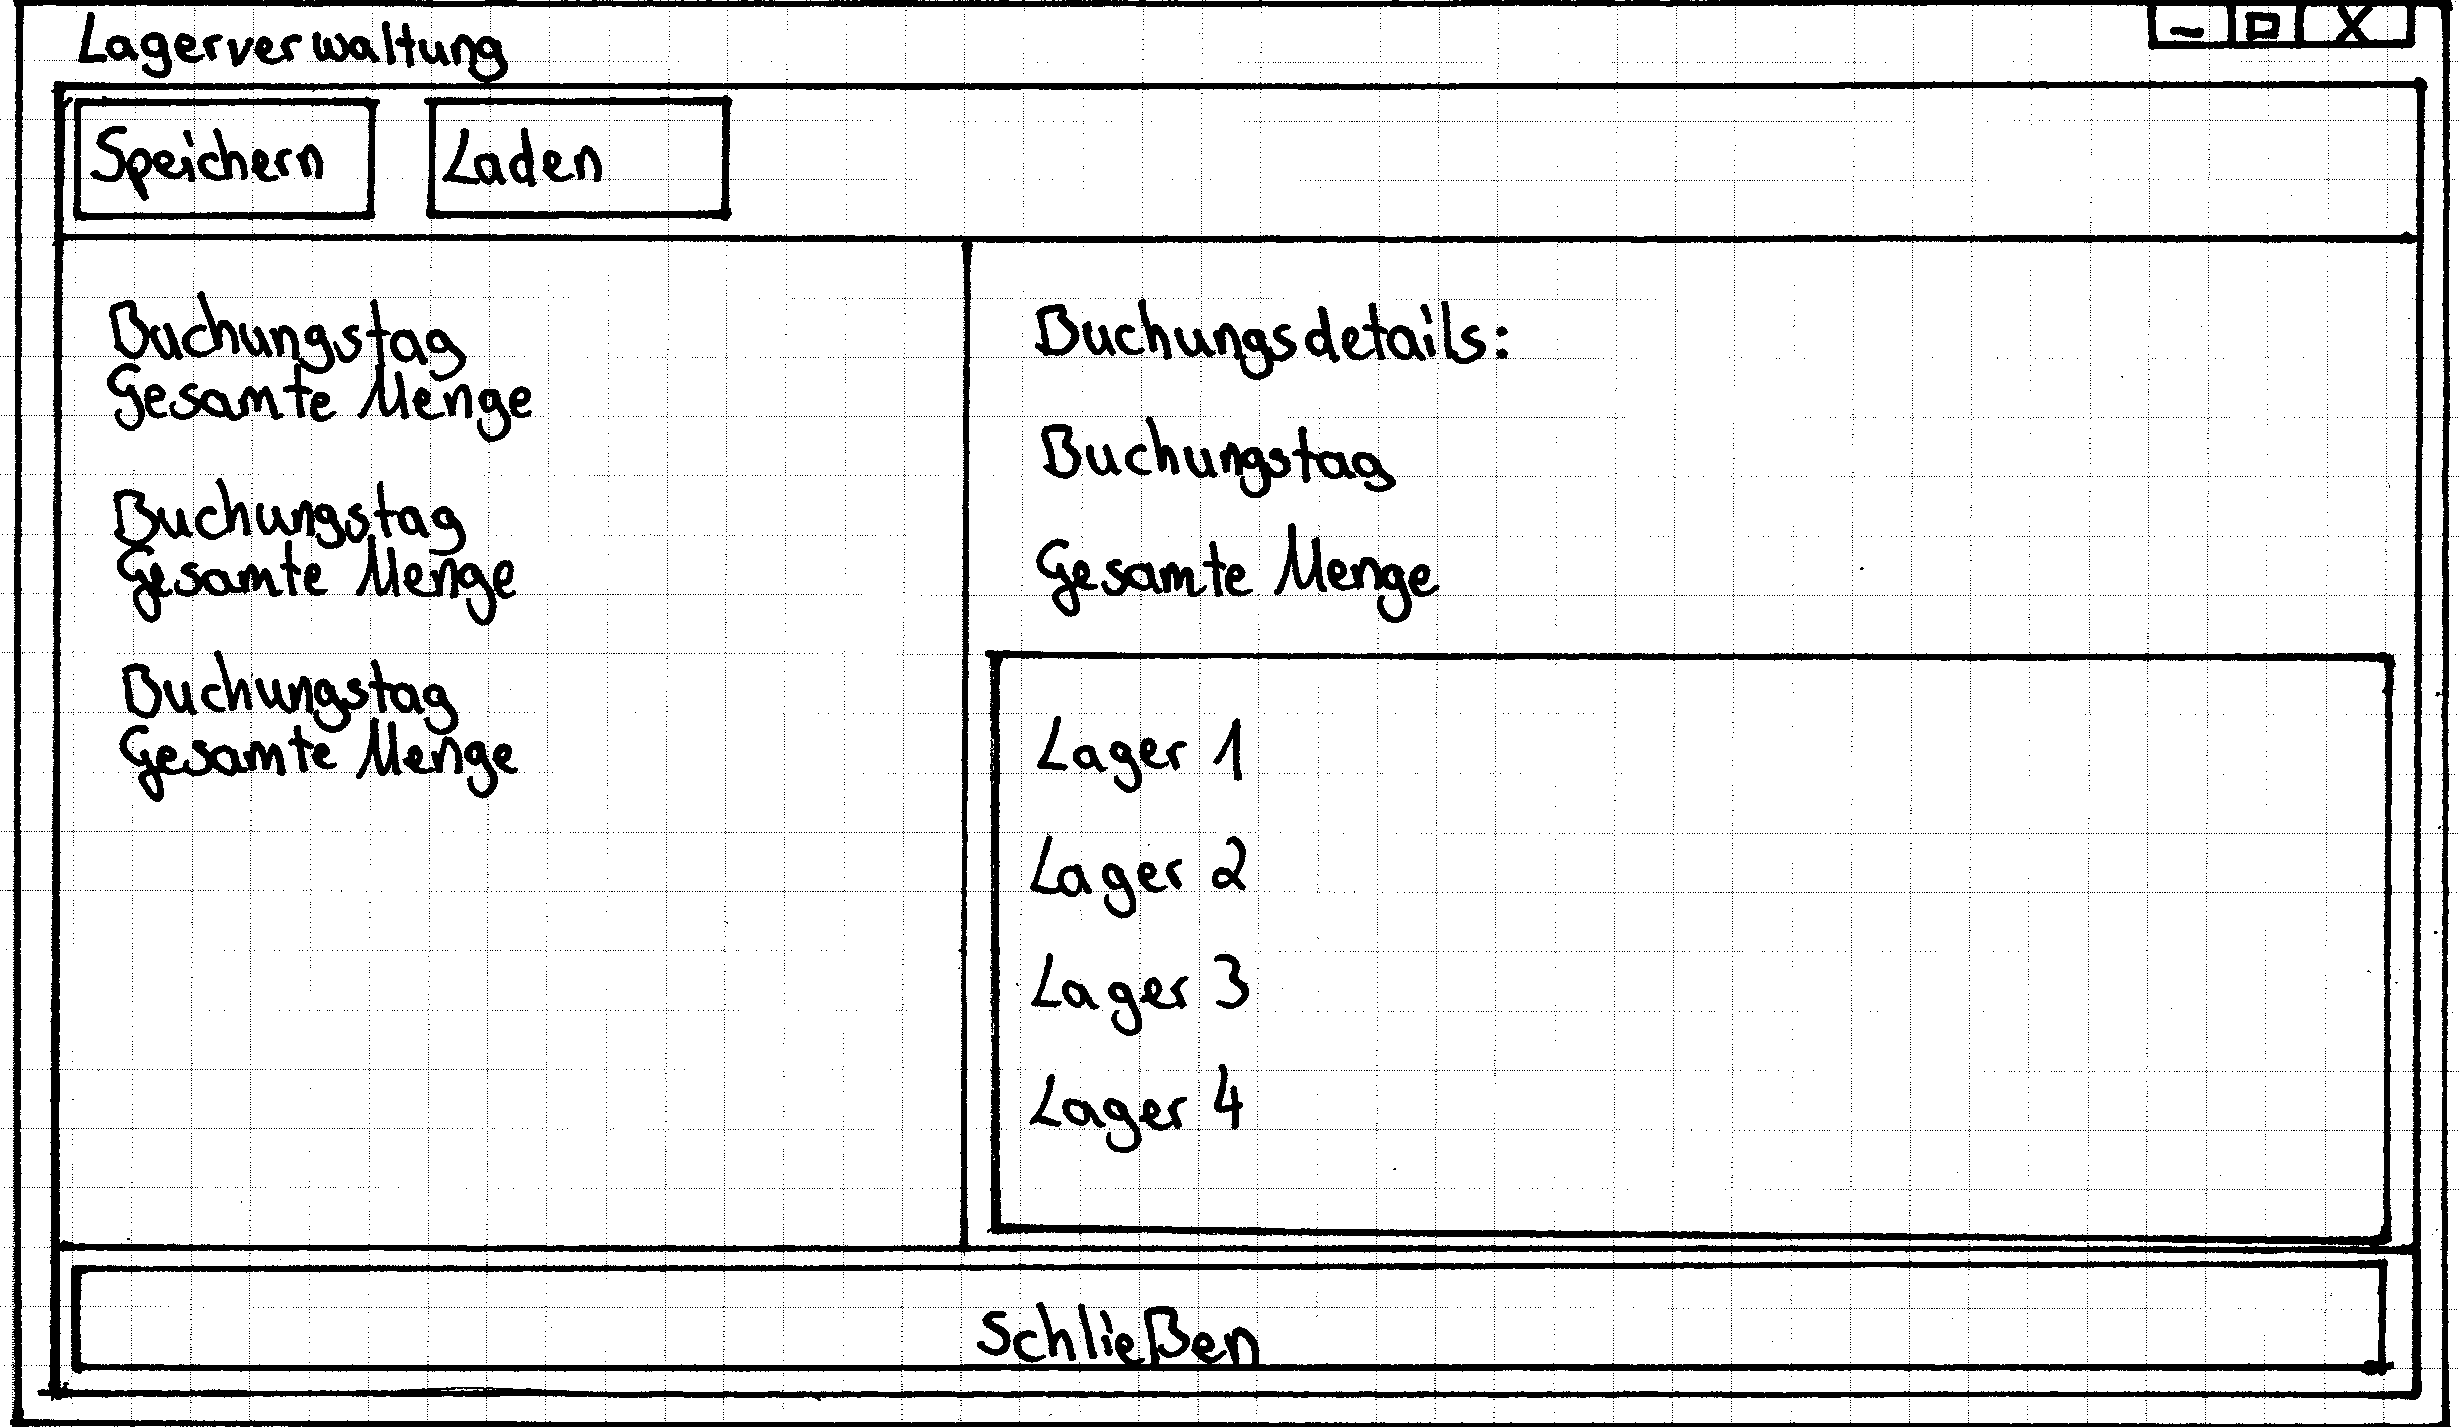 Lagerverwaltung
Speichern
Laden
Buchungstag
Gesamte Menge
Buchungstag
Gesamte Menge
Buchungstag
Gesamte Menge
Buchungsdetails:
Buchungstag
Gesamte Menge
Lager 1
Lager 2
Lager 3
Lager 4
Schließen